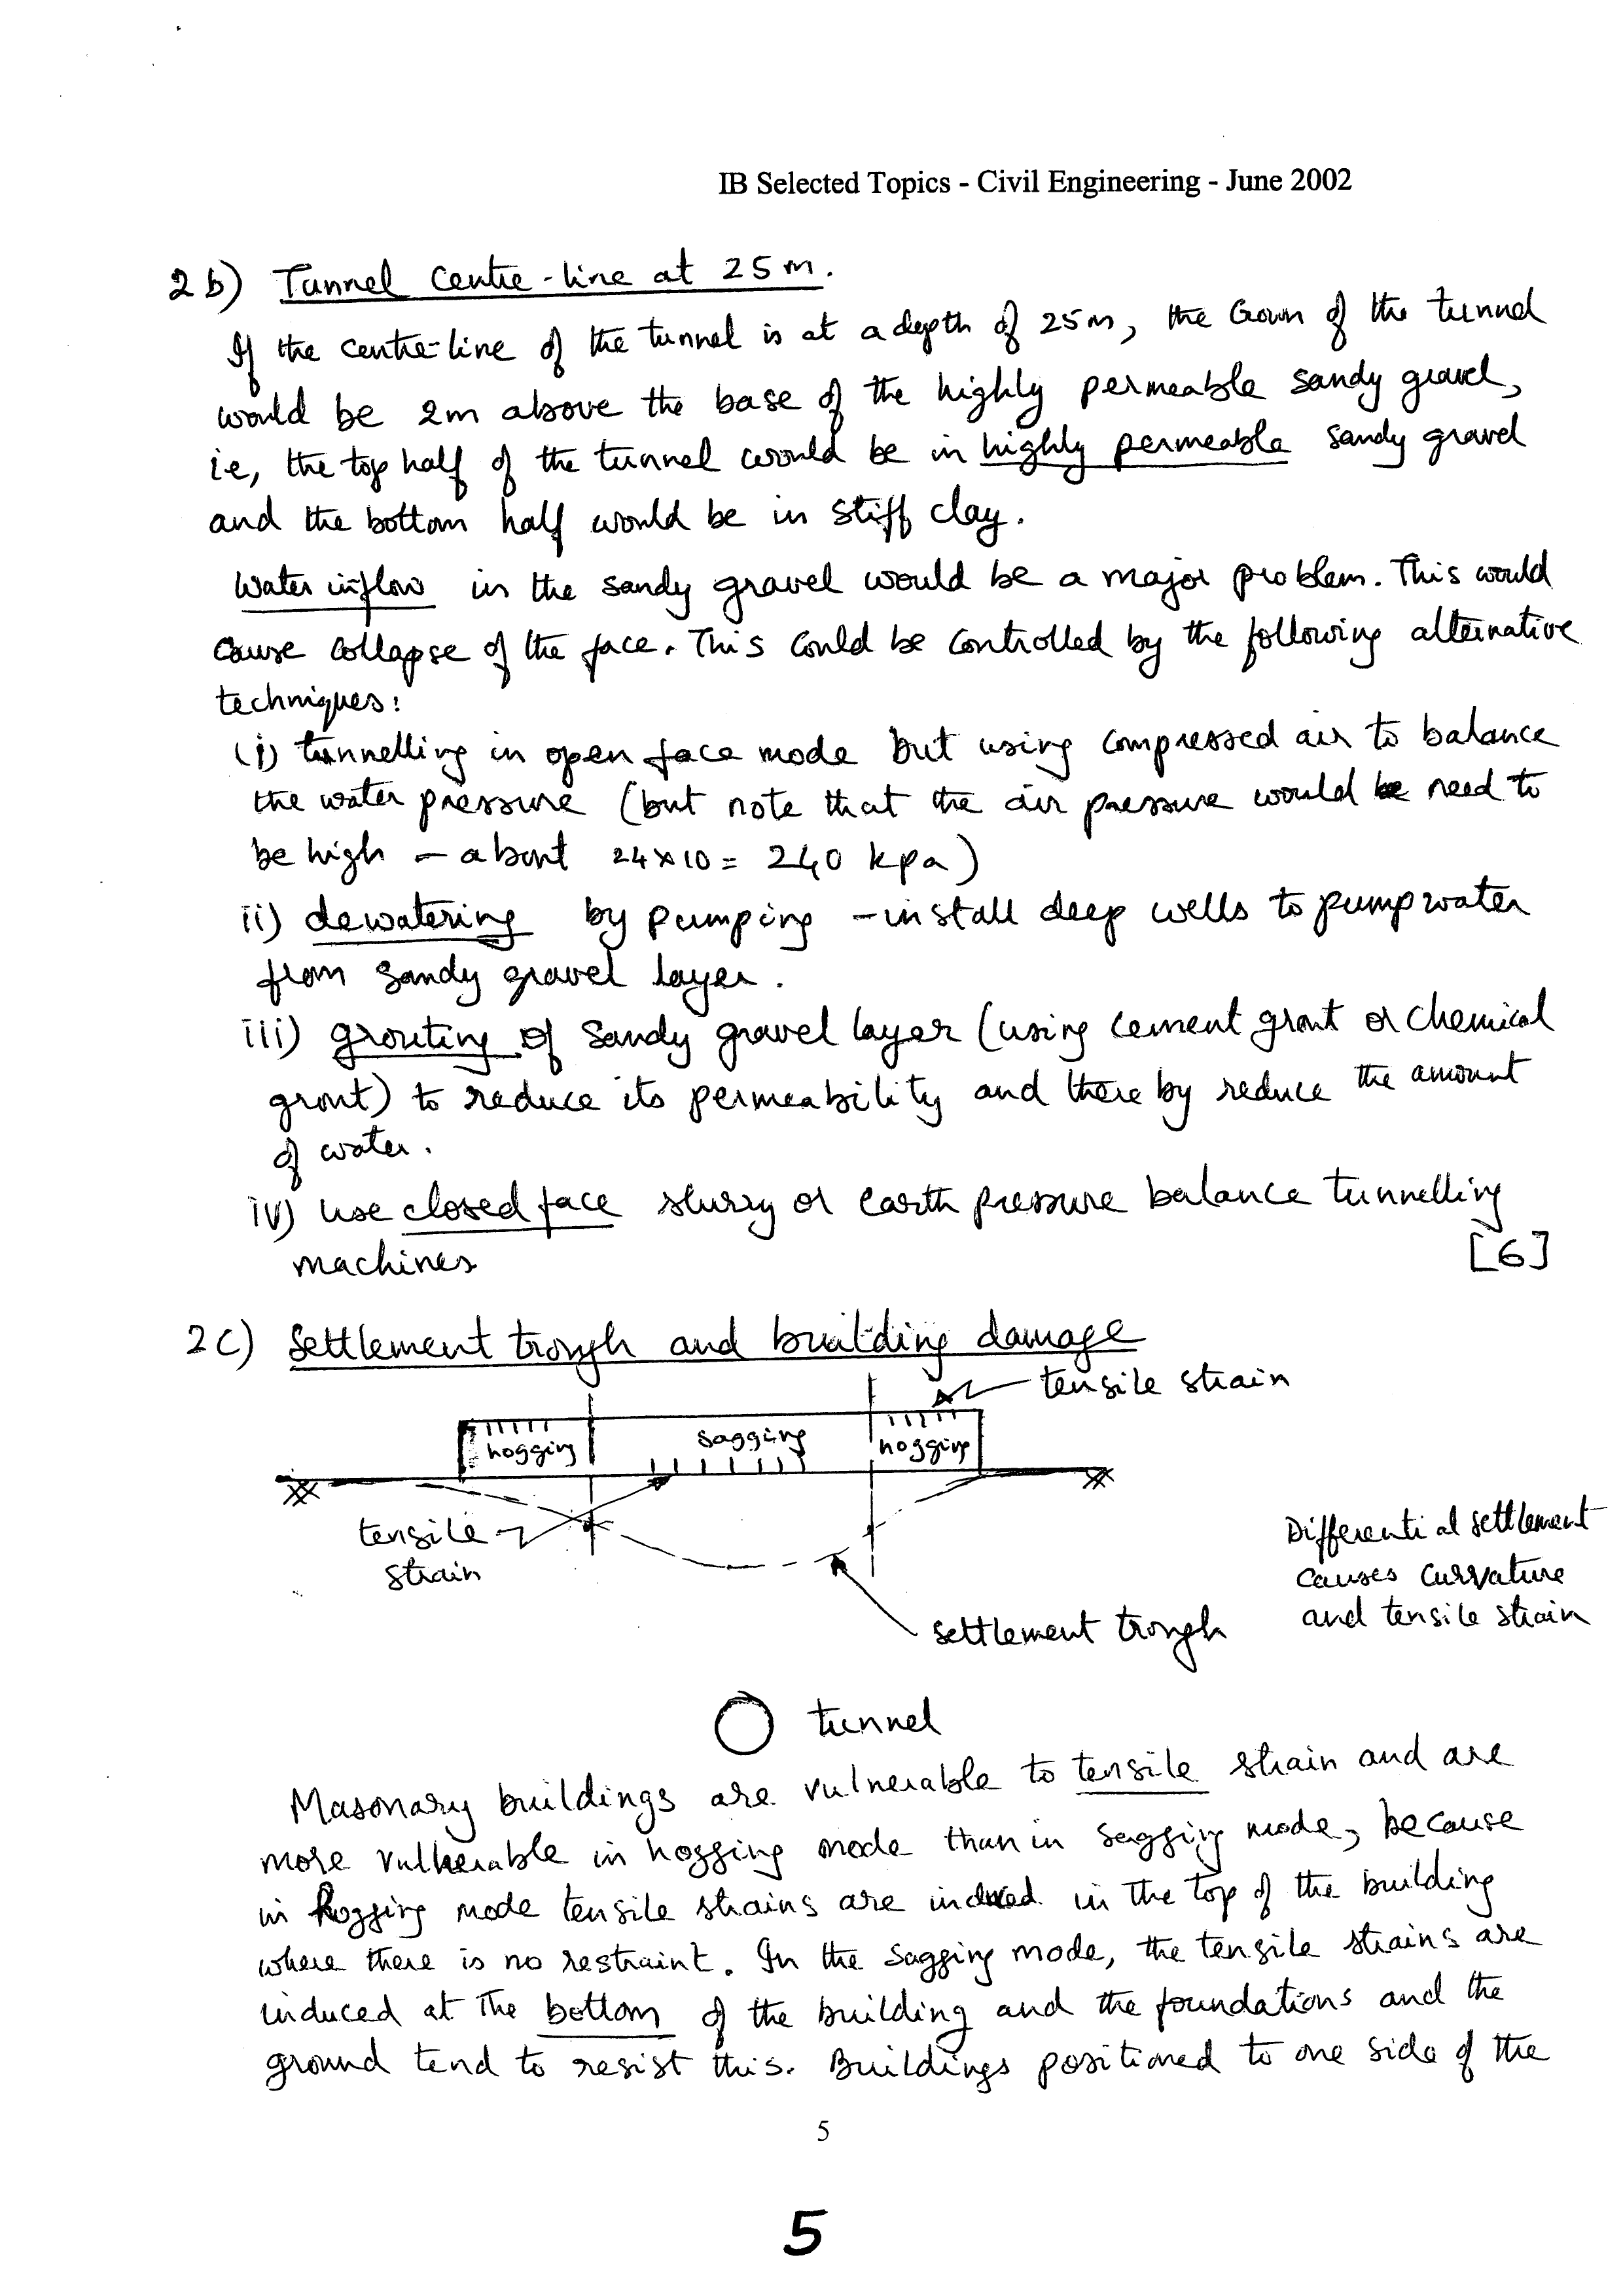 IB Selected Topics - Civil Engineering - June 2002
2b) Tunnel Centre-line at 25m.
If the centre-line of the tunnel is at a depth of 25m, the Crown of the tunnel
would be 2m above the base of the highly permeable sandy gravel,
ie, the top half of the tunnel would be in highly permeable sandy gravel
and the bottom half would be in stiff clay.
Water inflow in the sandy gravel would be a major problem. This would
cause collapse of the face. This could be controlled by the following alternative
techniques:
(i) tunnelling in open face mode but using compressed air to balance
the water pressure (but note that the air pressure would be need to
be high – about 24×10 = 240 kpa)
ii) dewatering by pumping – install deep wells to pump water
from sandy gravel layer.
iii) grouting of sandy gravel layer (using cement grout or chemical
grout) to reduce its permeability and there by reduce the amount
of water.
iv) use closed face slurry or earth pressure balance tunnelling
machines
[6]
2c) Settlement trough and building damage
tensile strain
hogging sagging hogging
tensile
strain
Differential settlement
causes curvature
and tensile strain
settlement trough
tunnel
Masonary buildings are vulnerable to tensile strain and are
more vulnerable in hogging mode than in sagging mode, because
in hogging mode tensile strains are induced in the top of the building
where there is no restraint. In the sagging mode, the tensile strains are
induced at the bottom of the building and the foundations and the
ground tend to resist this. Buildings positioned to one side of the
5
5